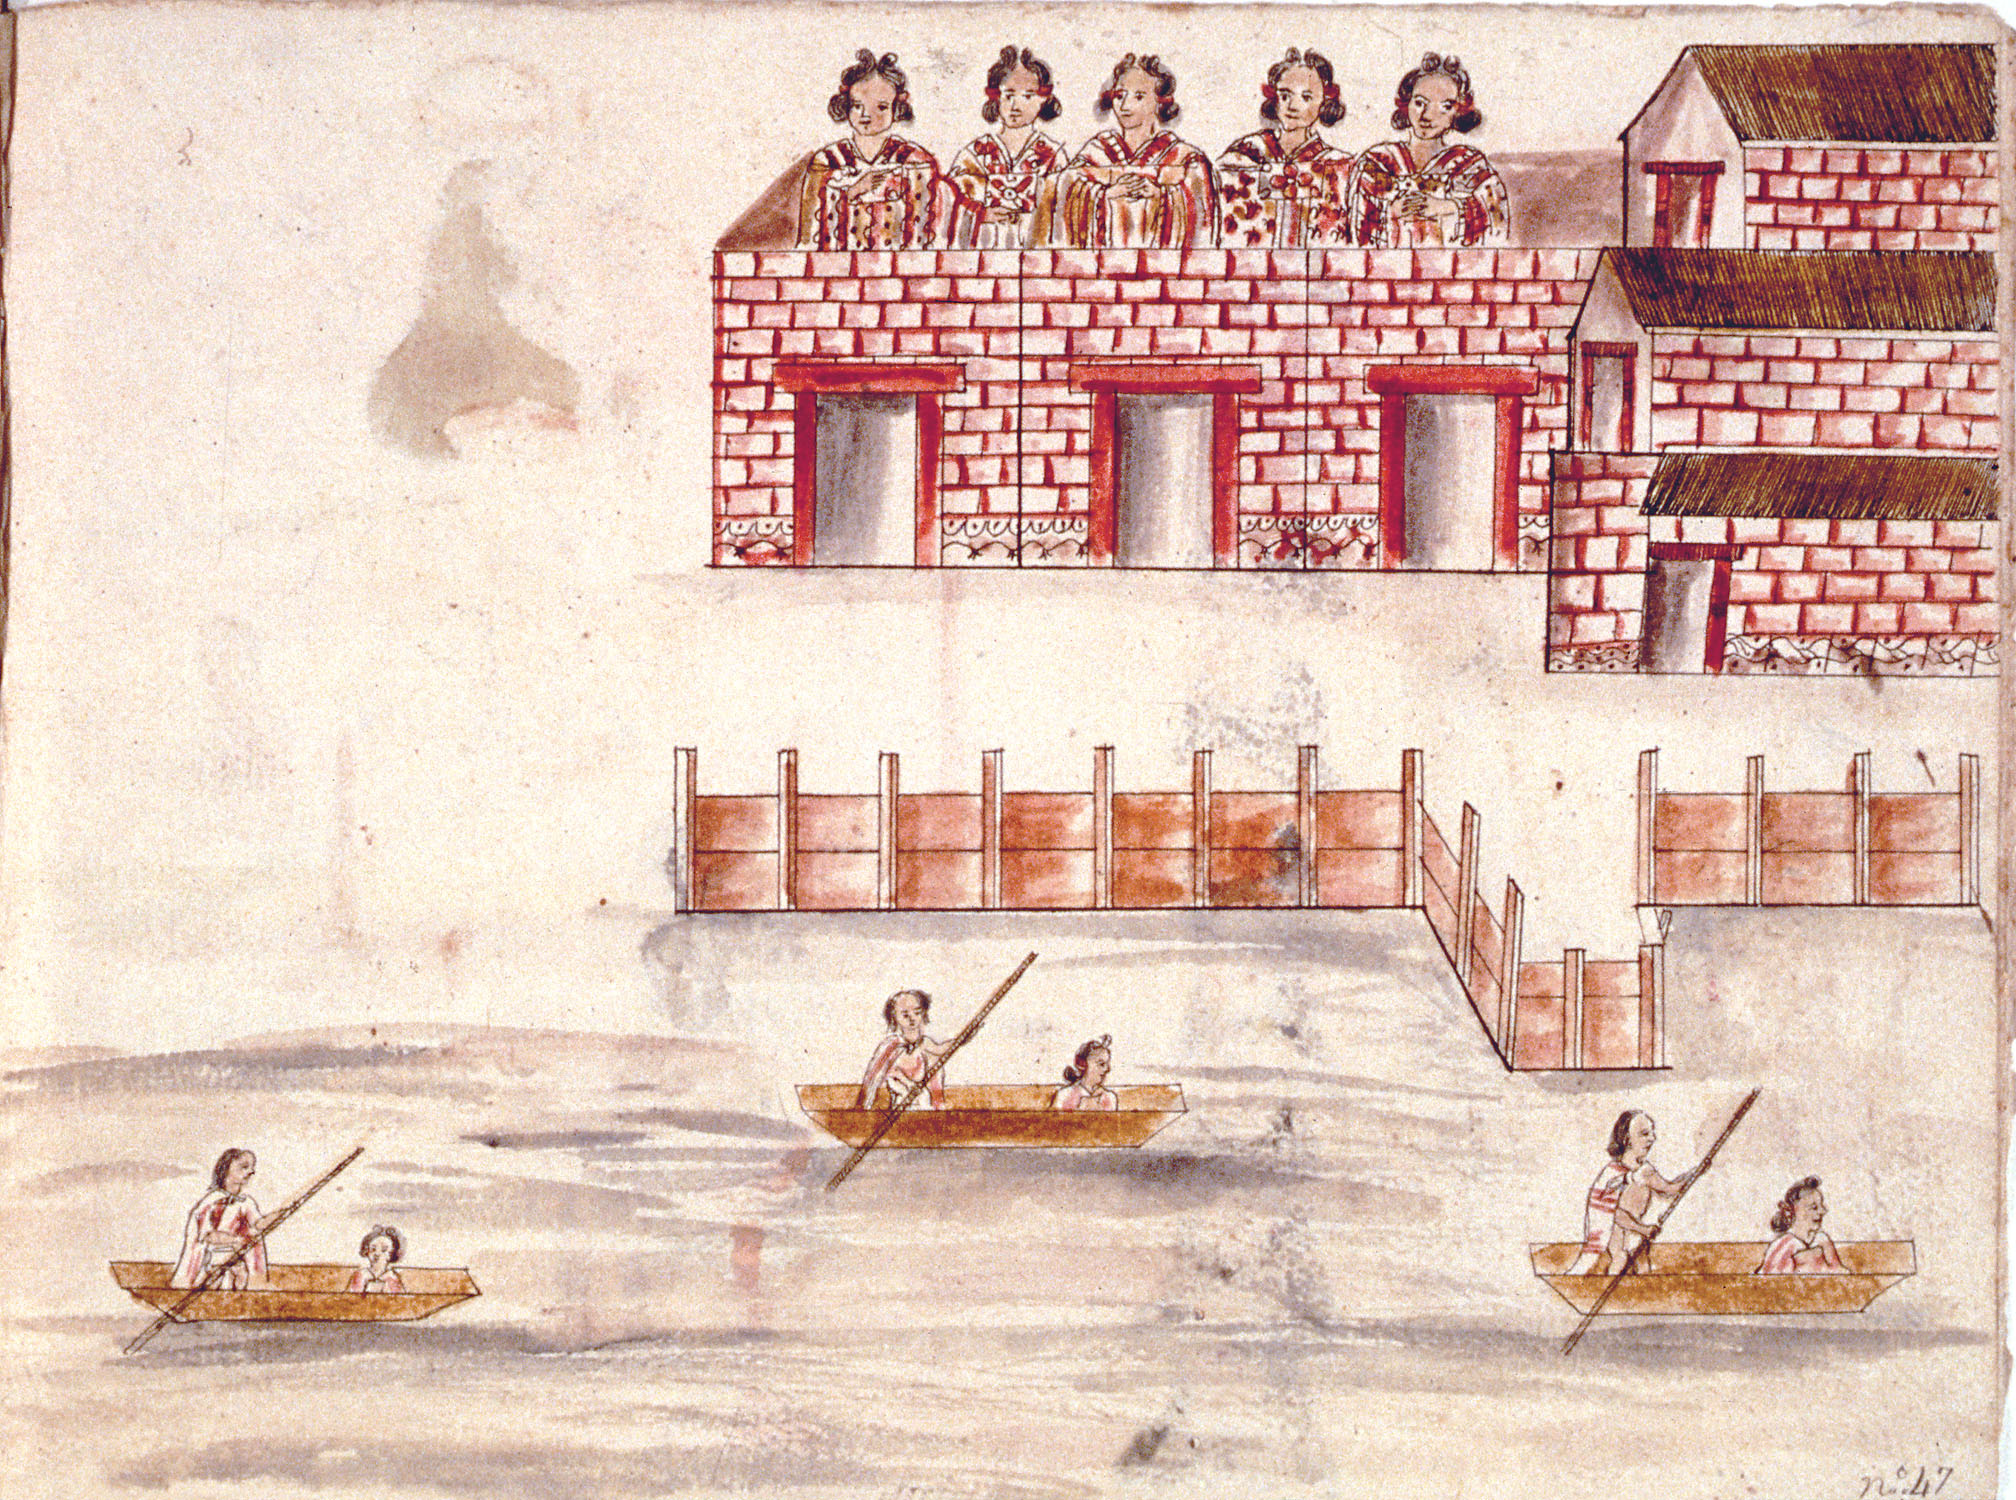 nº 47